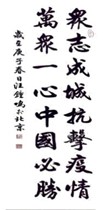 衆志成城抗擊疫情
萬衆一心中國必勝
歲在庚子春日汪鍾鳴於北京